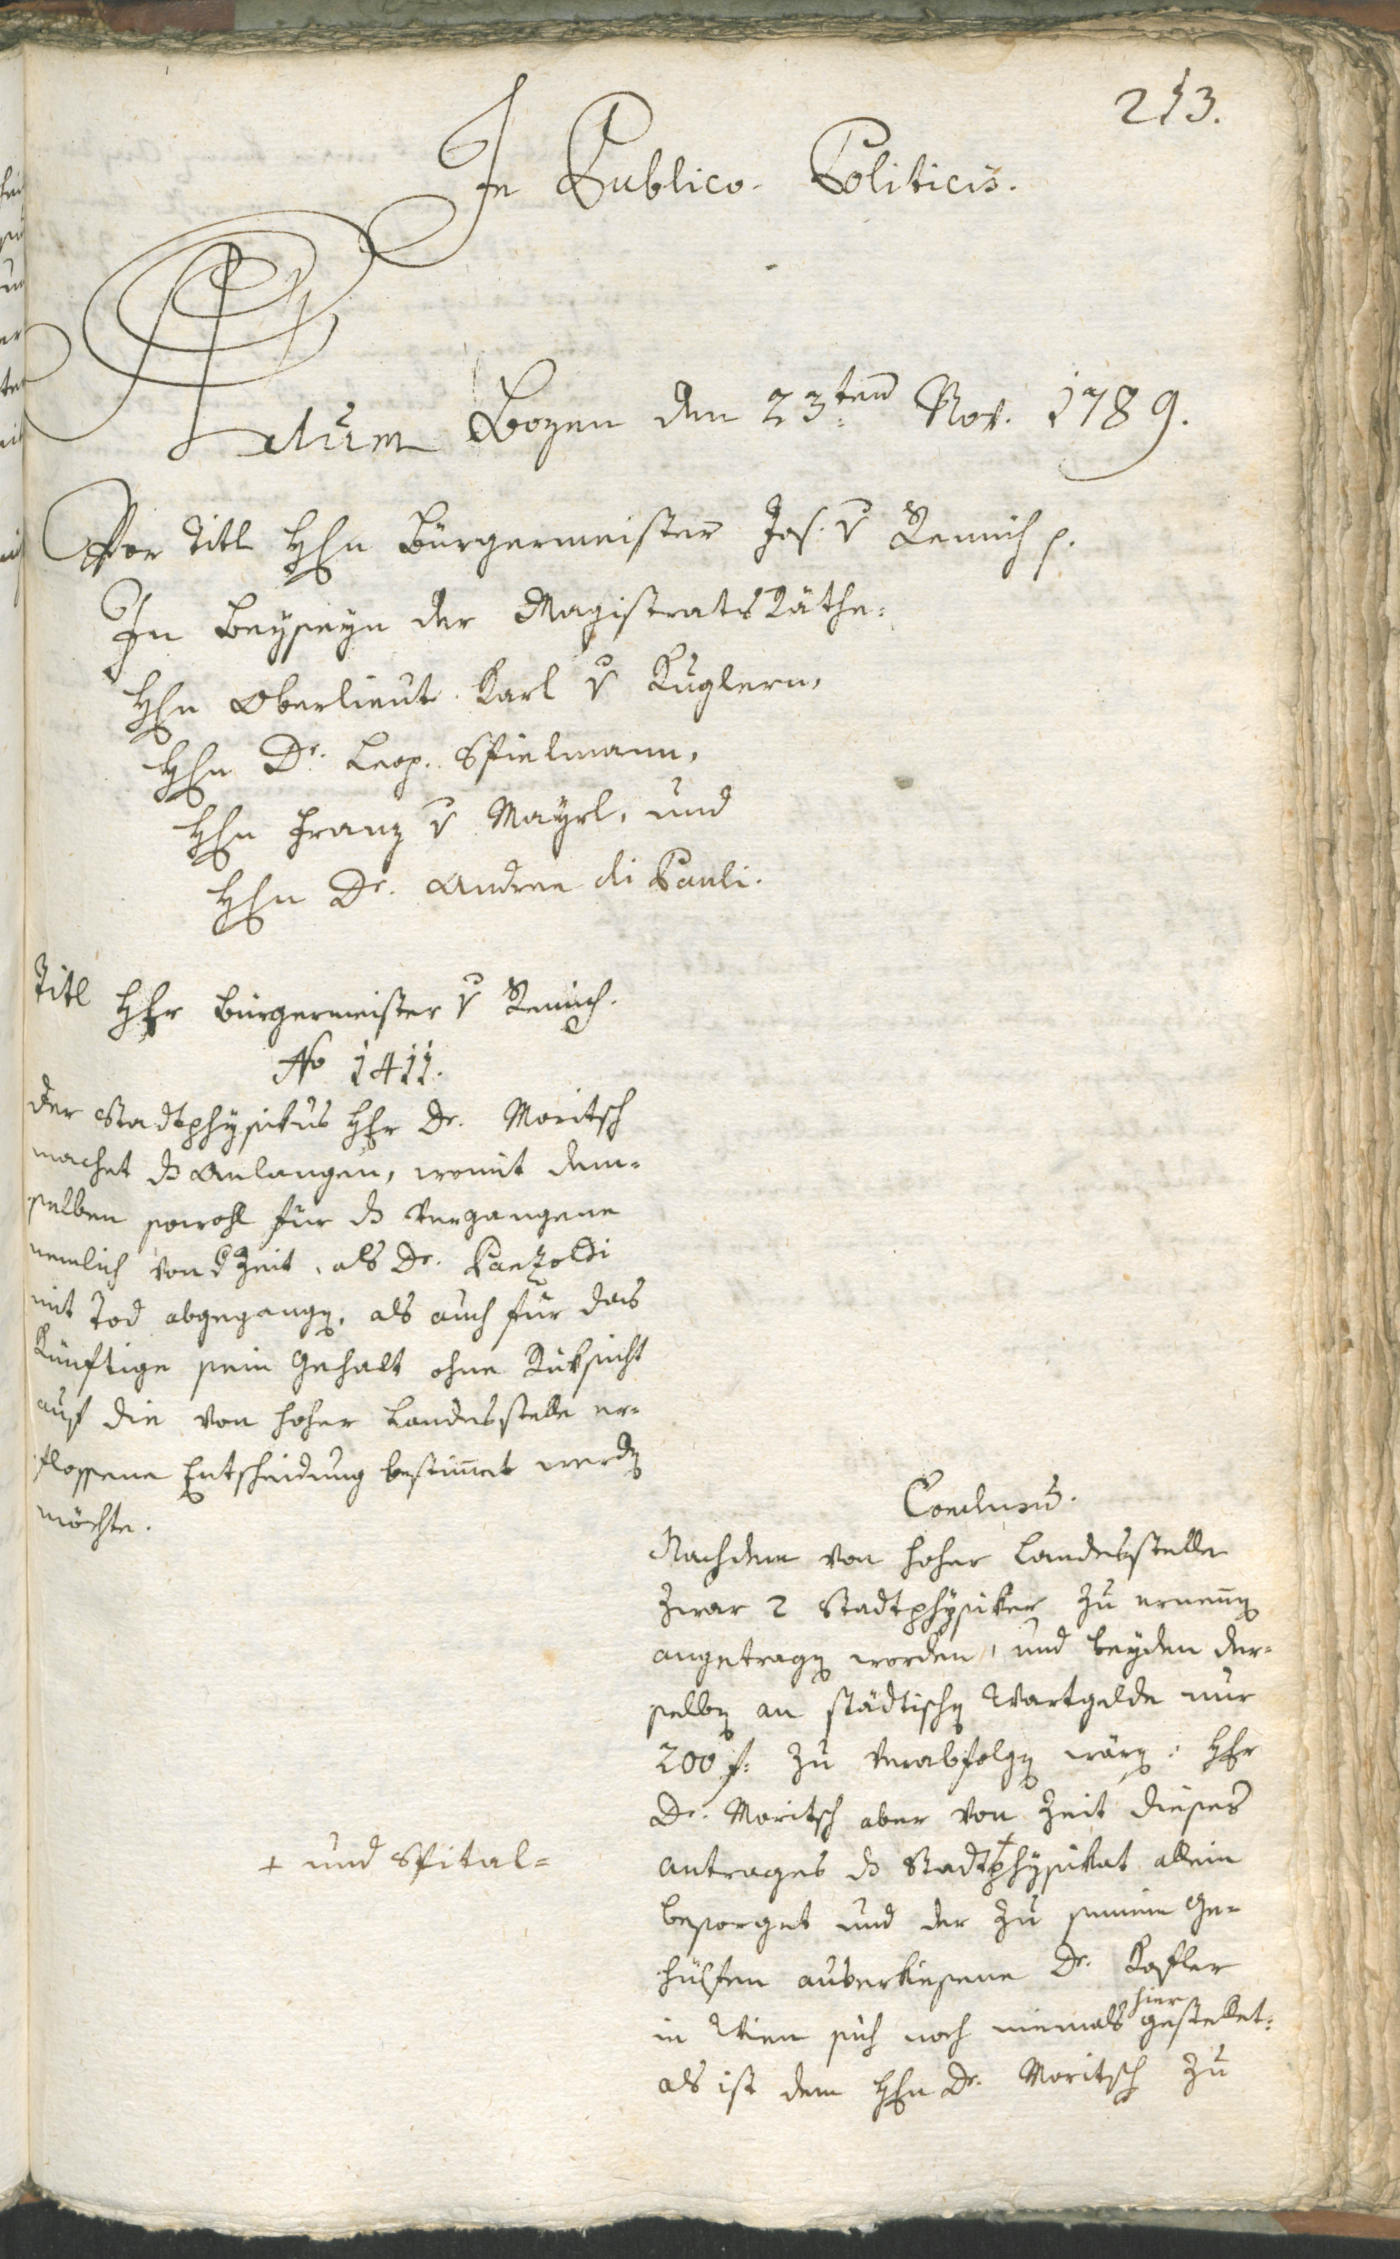 213.
In Publico-Politicis.
Actum Bozen den 23ten Nov. 1789.
Vor Titl Hhn Bürgermeister Jos. v Remich p.
In Beyseyn der Magistrats Räthe:
Hhn Oberlieut. Karl v Kuglern,
Hhn Dr. Leop. Spielmann,
Hhn Franz v Mayrl, und
Hhn Dr. Andree di Pauli.
Titl Hhr Bürgermeister v Remich.
No 1411.
Der Stadtphysikus Hhr Dr. Moritsch
machet ds Anlangen, womit dem-
selben sowohl für ds vergangene
nemlich von d Zeit, als Dr. Panzoldi
mit Tod abgegangen, als auch für das
Künftige sein Gehalt ohne Rüksicht
auf die von hoher Landesstelle er-
flossene Entscheidung bestimmt werden
möchte.
Conclusum.
Nachdem von hoher Landesstelle
zwar 2 Stadtphysiker zu ernennen
angetragen worden, und beyden der-
selben an städtischen Wartgelde nur
200 f. zu verabfolgen wären: Hhr
Dr. Moritsch aber von Zeit dieses
Antrages ds Stadt+physikat allein
+ und Spital-
besorget und der zu seinem Ge-
hülfen auserkiesene Dr. Kofler
in Wien sich noch niemals hier gestellet:
als ist dem Hhn Dr. Moritsch zu